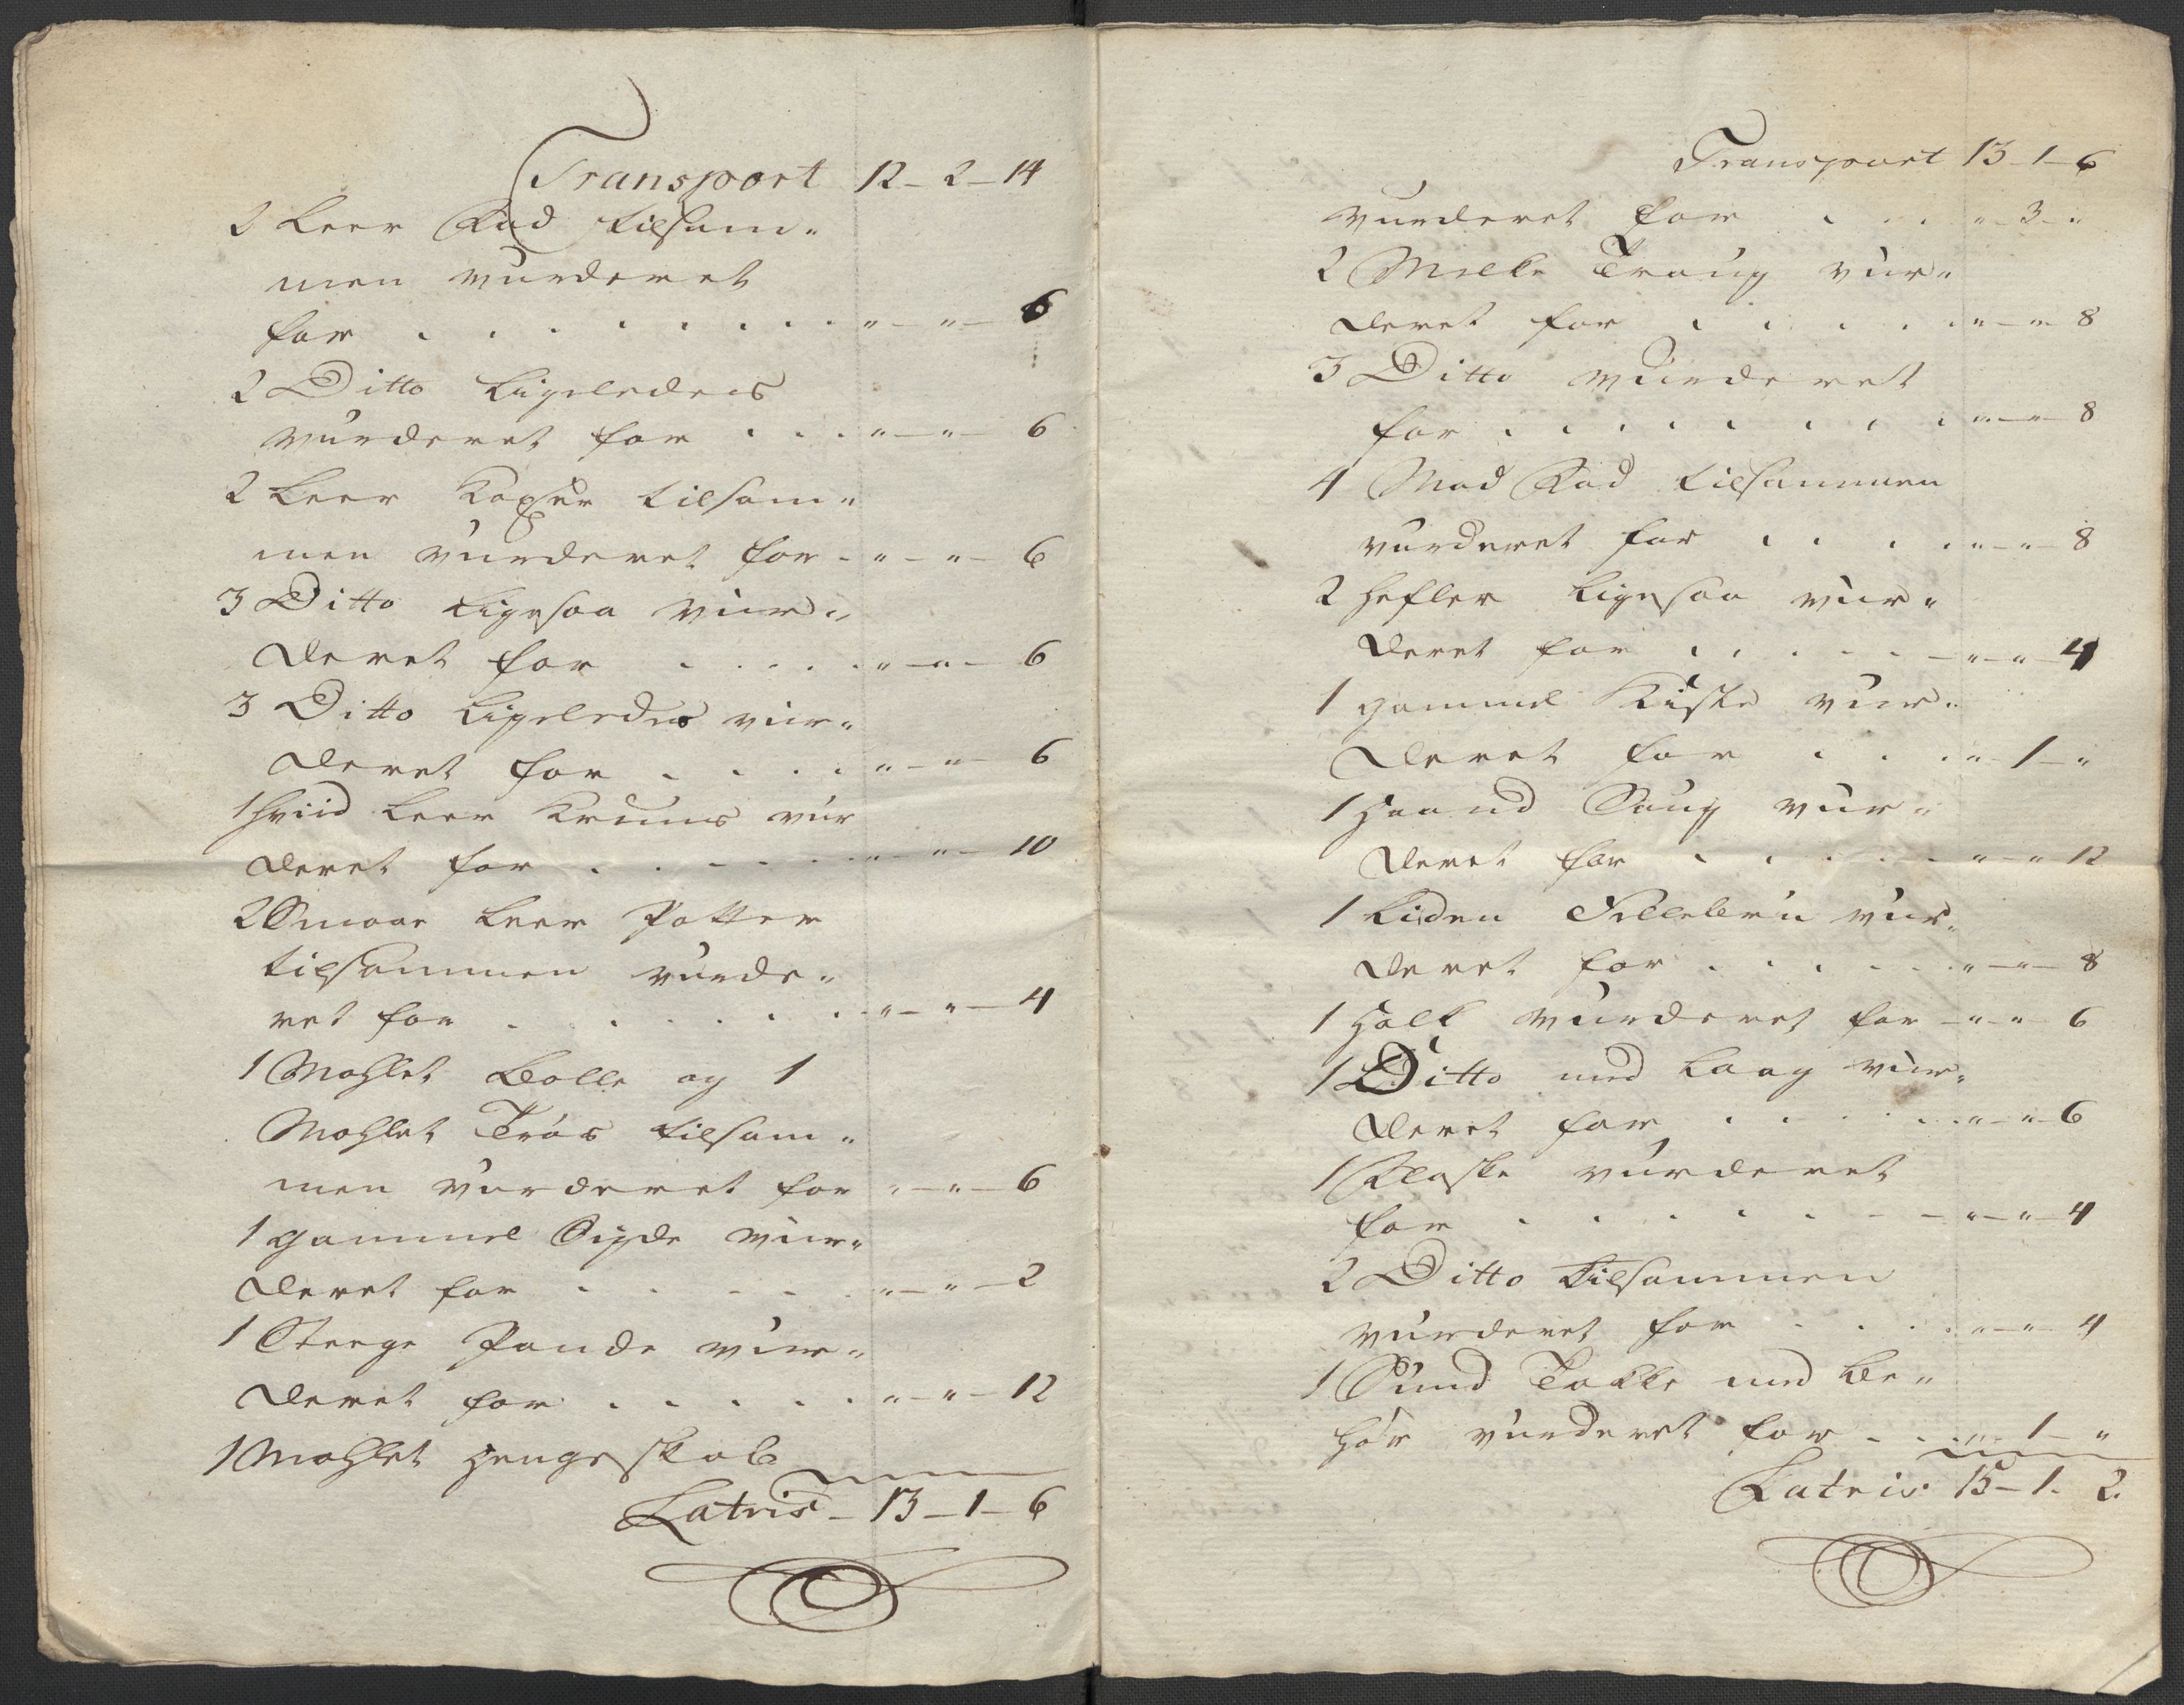 Transport 12 - 2 - 14
2 Leer Fad tilsam„
men vurderet
for . . . . . . . „ - „ - 6
2 Ditto Ligeledes
vurderet for . . . „ - „ - 6
2 Leer Kopper tilsam„
men vurderet for - „ - „ - 6
3 Ditto Ligesaa vur„
deret for . . . . . „ - „ - 6
3 Ditto Ligeledes vur„
deret for . . . . „ - „ - 6
1 Hviid Leer Kruus vur
deret for . . . . . „ - „ - 10
2 Smaae Leer Potter
tilsammen vurde„
ret for . . . . . . „ - „ - 4
1 Mahlet Bolle og 1
Mahlet Traas tilsam„
men vurderet for „ - „ - 6
1 gammel Sigde vur„
deret for . . . . . „ - „ - 2
1 Steege Pande vur„
deret for . . . . . „ - „ - 12
1 Mahlet Hengeskab
Latris - 13 - 1 - 6
Transport 13 - 1 - 6
vurderet for . . . „ - 3 - „
2 Melke Traug vur„
deret for . . . . „ - „ - 8
3 Ditto vurderet
for . . . . . . . „ - „ - 8
4 Mad Fad tilsammen
vurderet for . . . . „ - „ - 8
2 Hefler Ligesaa vur„
deret for . . . . . - „ - „ - 4
1 gammel Kiste vur„
deret for . . . „ - 1 - „
1 Haand Saug vur„
deret for . . . . . „ - „ - 12
1 Liden vur„
deret for . . . . . „ - „ - 8
1 Holk vurderet for - „ - „ - 6
1 Ditto med Laag vur„
deret for . . . . . „ - „ - 6
1 Flaske vurderet
for . . . . . . - „ - „ - 4
2 Ditto Tilsammen
vurderet for . . . . „ - „ - 4
1 Sund Takke med be„
hør vurderet for . . . „ - 1 - „
Latris 15 - 1 - 2.